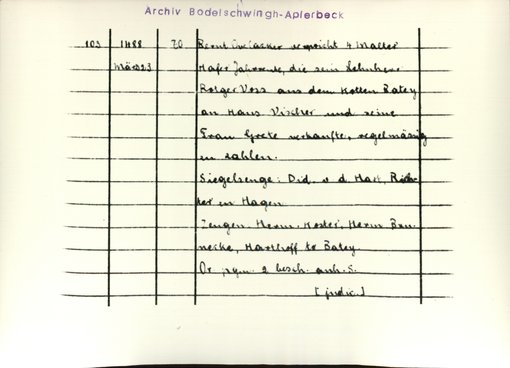 Archiv Bodelschwingh-Apferbeck
103 1488 20 Bernt Overacker verspricht 4 Malter
März 23 Hafer Jahrrente, die sein Lehnherr
Rotger Voss aus dem Kotten Batey
an Hans Vischer und seine
Frau Grete verkaufte, regelmässig
zu zahlen.
Siegelzeuge: Did. v d Mark, Rich-
ter in Hagen
Zeugen: Herm. Koster, Herm Bru-
neske, Harthoff to Batey
Or prgm. 2 besch. anh. S.